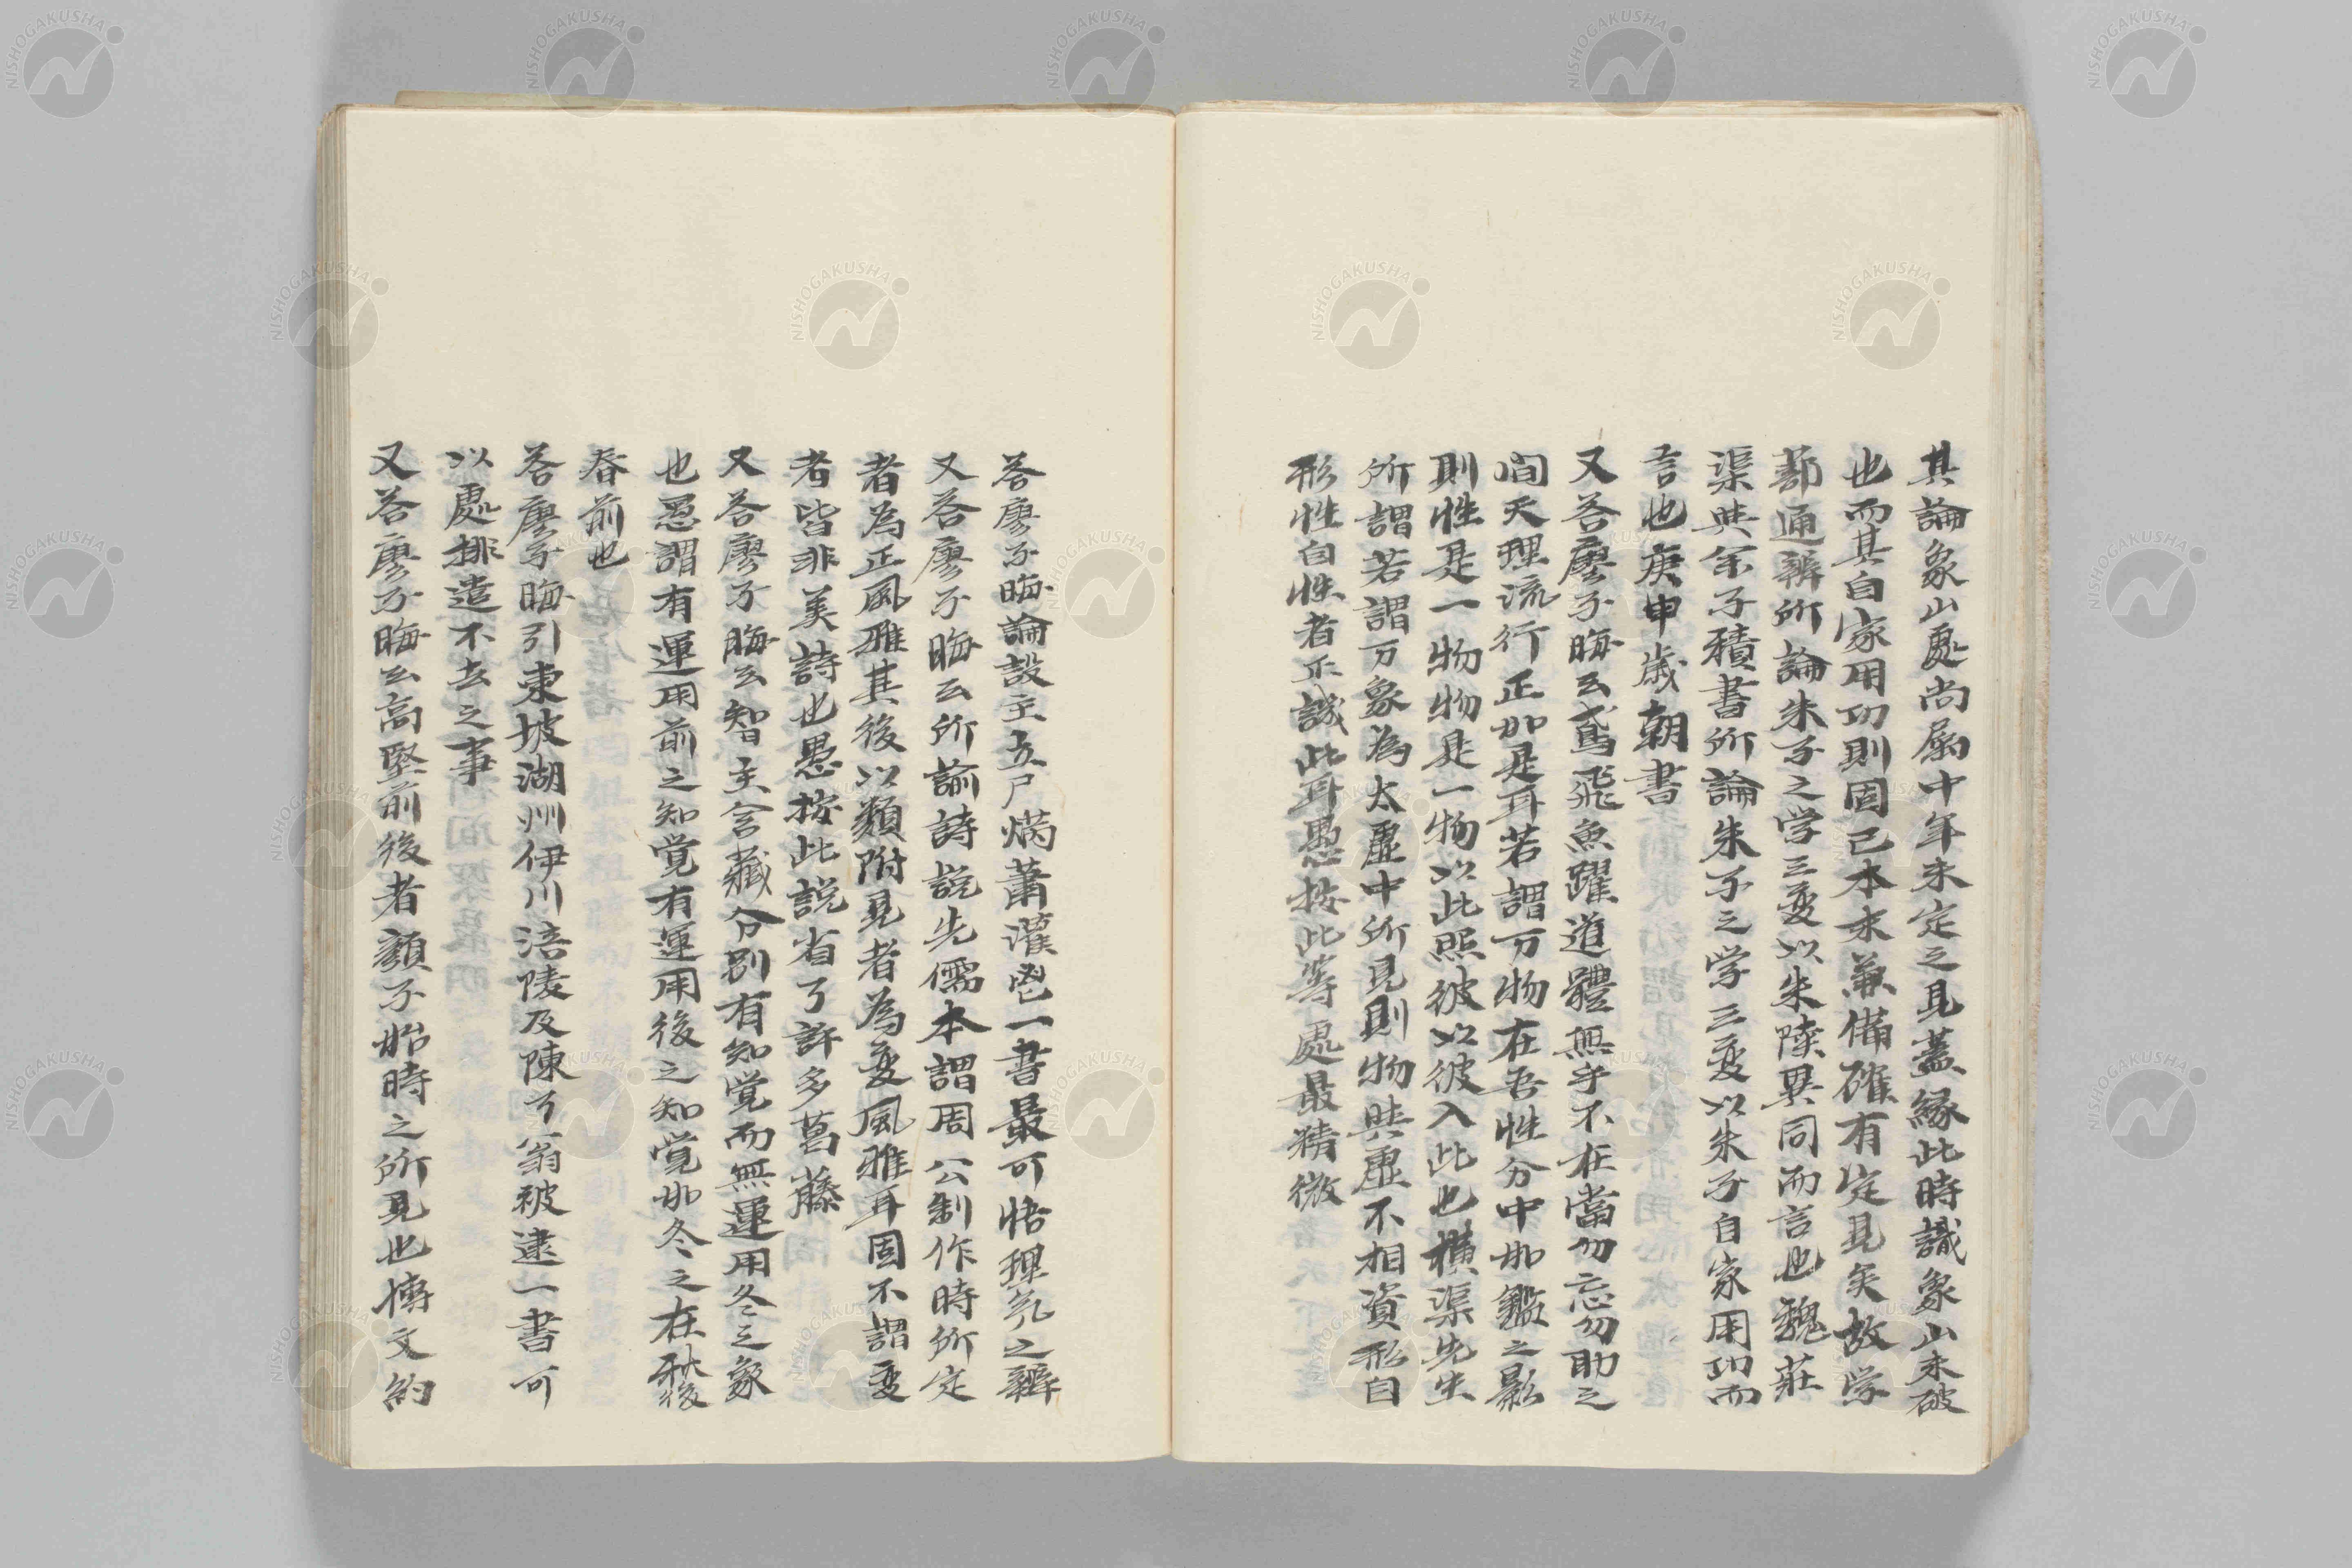 其論象山處尚屬中年未定之見蓋縁此時識象山未破
也而其自家用功則固已本末兼備確有定見矣故学
蔀通辨所論朱子之学三変以朱陸異同而言也魏莊
渠與余子積書所論朱子之学三変以朱子自家用功而
言也庚申歳朝書
又荅廖子晦云鳶飛魚躍道體無乎不在當勿忘勿助之
间天理流行正如是耳若謂万物在吾性分中如鑑之影
則性是一物物是一物以此照彼以彼入此也横渠先生
所謂若謂万象為太虚中所見則物與虚不相資形自
形性自性者正譏此耳愚按此等處最精微
荅廖子晦論設主立尸焫蕭灌鬯一書最可悟理気之辨
又荅廖子晦云所諭詩説先儒本謂周公制作時所定
者為正風雅其後以類附見者為変風雅耳固不謂変
者皆非美詩也愚按此説省了許多葛藤
又荅廖子晦云智主含藏分别有知覚而無運用冬之象
也愚謂有運用前之知覚有運用後之知覚如冬之在秋後
春前也
荅廖子晦引東坡湖州伊川涪陵及陳了翁被逮一書可
以處排遣不去之事
又荅廖子晦云高堅前後者顔子始時之所見也博文約
NISHOGAKUSHA